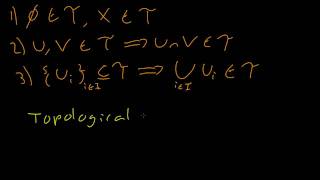 1) ∅ ∈ τ, X ∈ τ
2) U, V ∈ τ ⟹ U ∩ V ∈ τ
3) {U_i}_{i∈I} ⊆ τ ⟹ ⋃_{i∈I} U_i ∈ τ
Topological